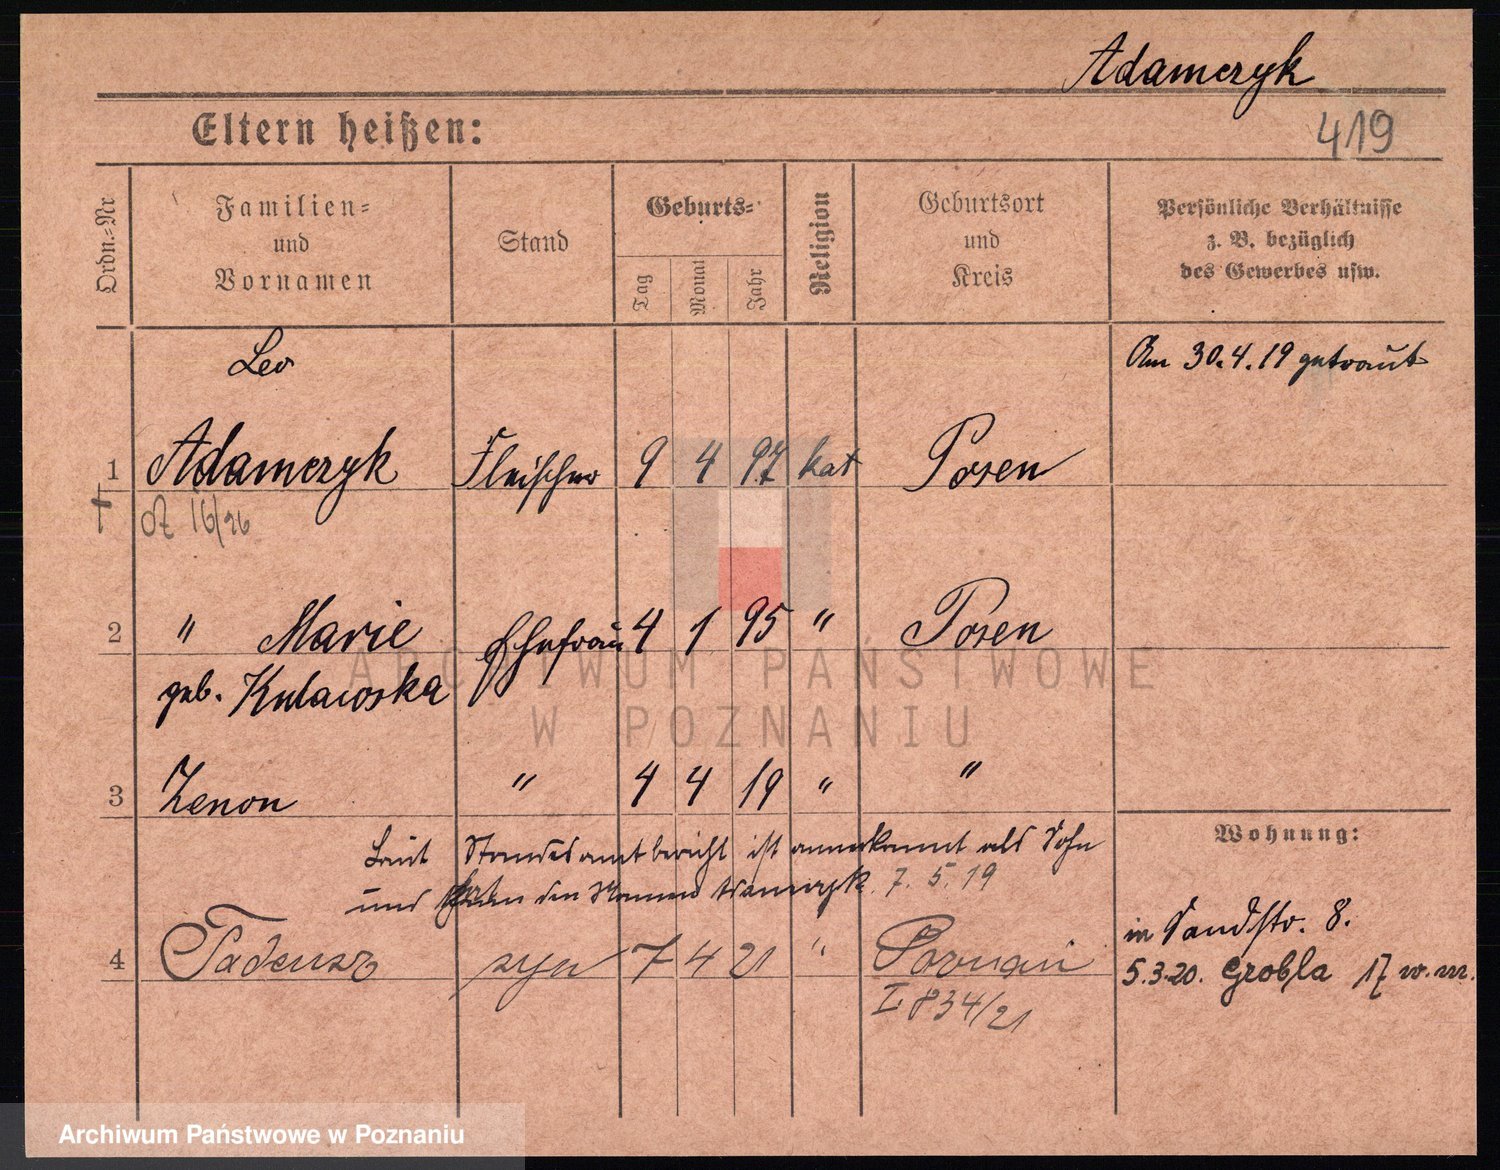 Adamczyk
Eltern heißen:
419
Ordn.-Nr
Familien-
und
Vornamen
Stand
Geburts-
Tag
Monat
Jahr
Religion
Geburtsort
und
Kreis
Persönliche Verhältnisse
z. B. bezüglich
des Gewerbes usw.
Leo
Am 30.4.19 getraut
1 Adamczyk Fleischer 9 4 97 kat Posen
† 16/26
2 " Marie Ehefrau 4 1 95 " Posen
geb. Kulawska
ARCHIWUM PAŃSTWOWE
W POZNANIU
3 Zenon " 4 4 19 " "
Laut Standesamtbericht ist anerkannt als Sohn
und den Namen Adamczyk. 7. 5. 19
4 Tadeusz syn 7 4 21 " Poznań
I. 834/21
Wohnung:
in Sandstr. 8.
5.3.20. Grobla 17 w.m.
Archiwum Państwowe w Poznaniu